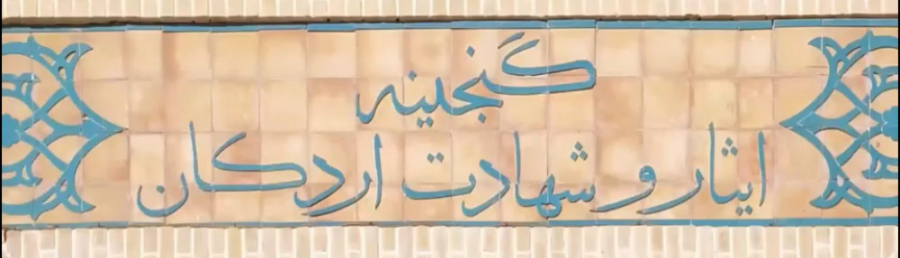 گنجینه
ایثار و شهادت اردکان